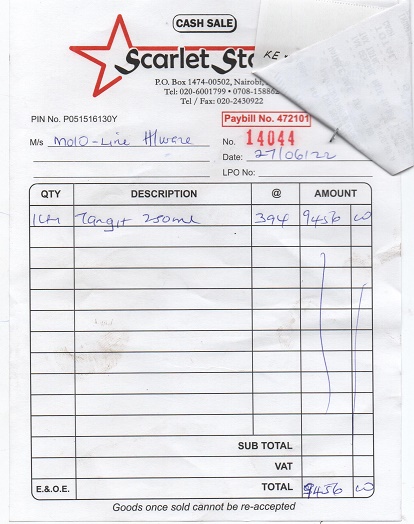 CASH SALE
Scarlet Sto
KE
P.O. Box 1474-00502, Nairobi,
Tel: 020-6001799 • 0708-15886
Tel / Fax: 020-2430922
PIN No. P051516130Y
Paybill No. 472101
M/s Molo-Line H/ware
No. 14044
Date: 27/06/22
LPO No:
QTY DESCRIPTION @ AMOUNT
Tangit 250ml 394 9456 00
SUB TOTAL
VAT
E.&O.E. TOTAL 9456 00
Goods once sold cannot be re-accepted